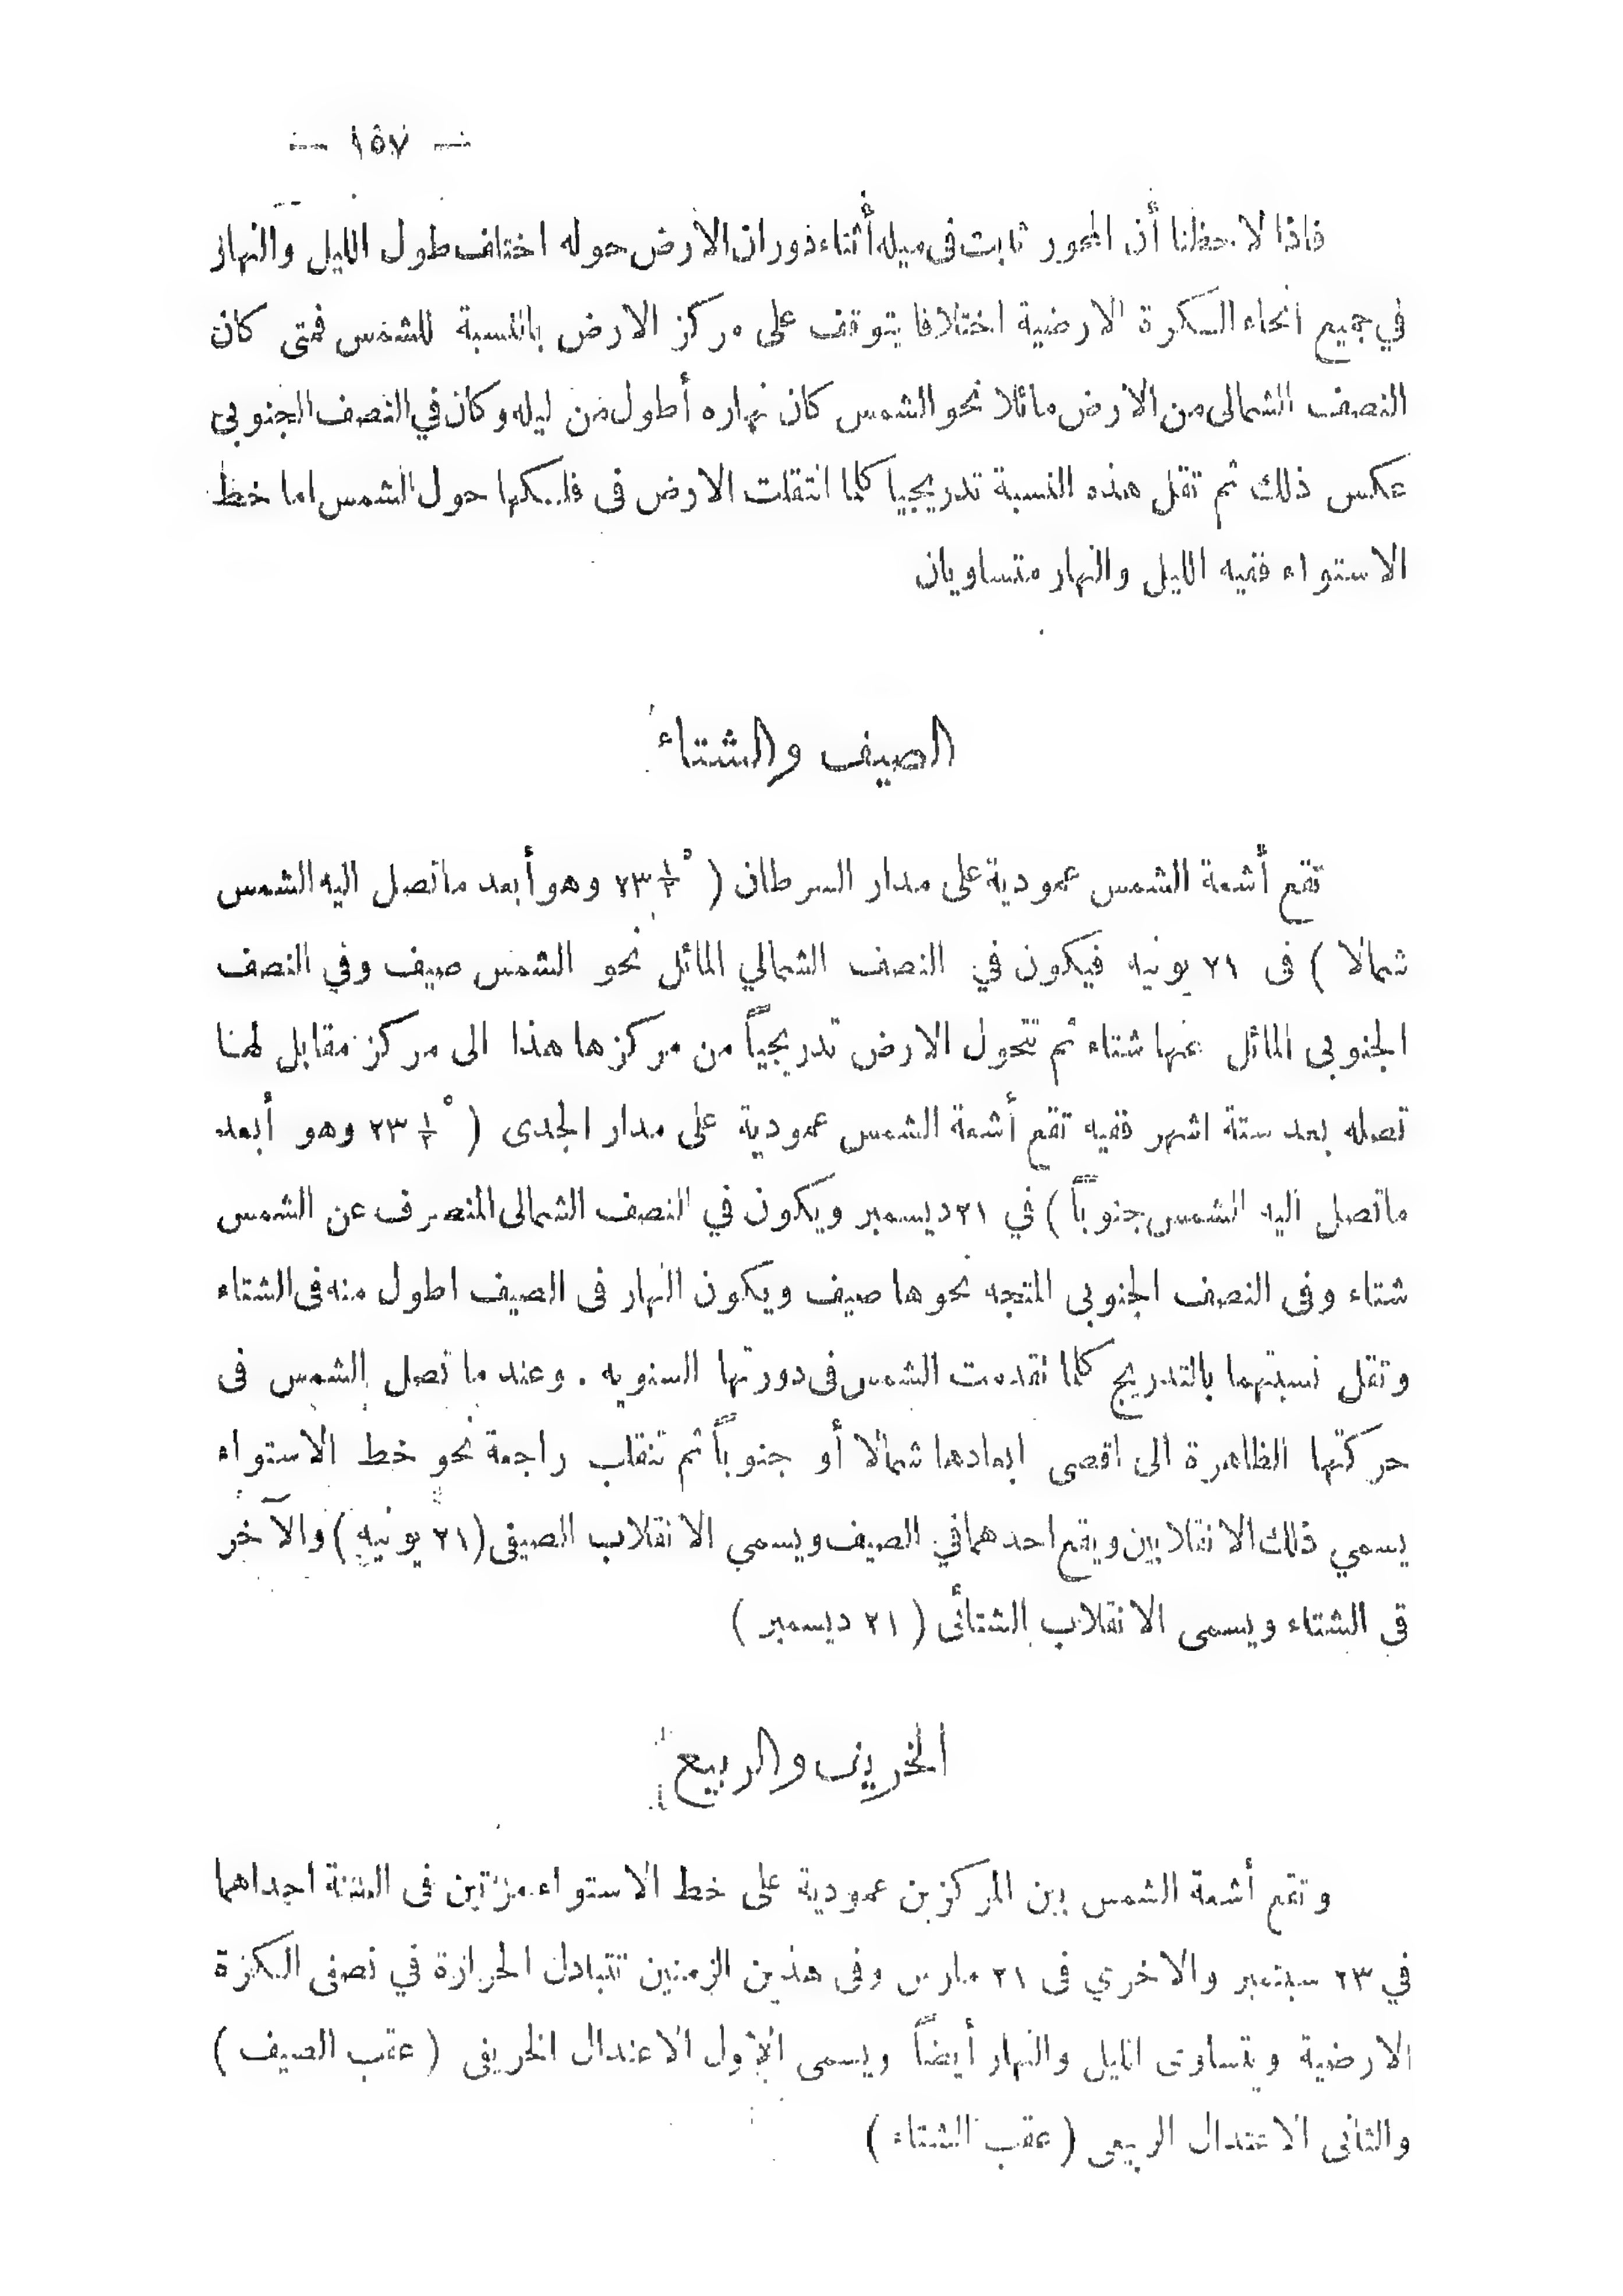 — ١٥٧ —
فاذا لاحظنا أن المحور ثابت فى ميله أثناء دوران الارض حوله اختلف طول الليل والنهار
في جميع انحاء الكرة الارضية اختلافا يتوقف على مركز الارض بالنسبة للشمس فمتى كان
النصف الشمالى من الارض مائلا نحو الشمس كان نهاره أطول من ليله وكان في النصف الجنوبى
عكس ذلك ثم تقل هذه النسبة تدريجيا كلما انتقلت الارض فى فلكها حول الشمس اما خط
الاستواء ففيه الليل والنهار متساويان
الصيف والشتاء
تقع أشعة الشمس عمودية على مدار السرطان ( ٢٣ ١/٢° وهو أبعد ماتصل اليه الشمس
شمالا ) فى ٢١ يونيه فيكون في النصف الشمالي المائل نحو الشمس صيف وفي النصف
الجنوبى المائل عنها شتاء ثم تتحول الارض تدريجياً من مركزها هذا الى مركز مقابل لهذا
تصله بعد ستة اشهر ففيه تقع أشعة الشمس عمودية على مدار الجدى ( ٢٣ ١/٢° وهو أبعد
ماتصل اليه الشمس جنوباً ) في ٢١ ديسمبر ويكون في النصف الشمالى المنصرف عن الشمس
شتاء وفى النصف الجنوبى المتجه نحوها صيف ويكون النهار فى الصيف اطول منه فى الشتاء
وتقل نسبتهما بالتدريج كلما تقدمت الشمس فى دورتها السنويه . وعند ما تصل الشمس فى
حركتها الظاهرة الى اقصى ابعادها شمالا أو جنوباً ثم تنقلب راجعة نحو خط الاستواء
يسمي ذلك الانقلابين ويقع احدهما في الصيف ويسمي الانقلاب الصيفى (٢١ يونيه) والآخر
فى الشتاء ويسمى الانقلاب الشتائى ( ٢١ ديسمبر )
الخريف والربيع
وتقع أشعة الشمس بين المركزين عمودية على خط الاستواء مرتين فى السنة احداهما
في ٢٣ سبتمبر والاخري فى ٢١ مارس وفى هذين الزمنين تتبادل الحرارة في نصفى الكرة
الارضية ويتساوى الليل والنهار أيضاً ويسمى الاول الاعتدال الخريفى ( عقب الصيف )
والثانى الاعتدال الربيعى ( عقب الشتاء )